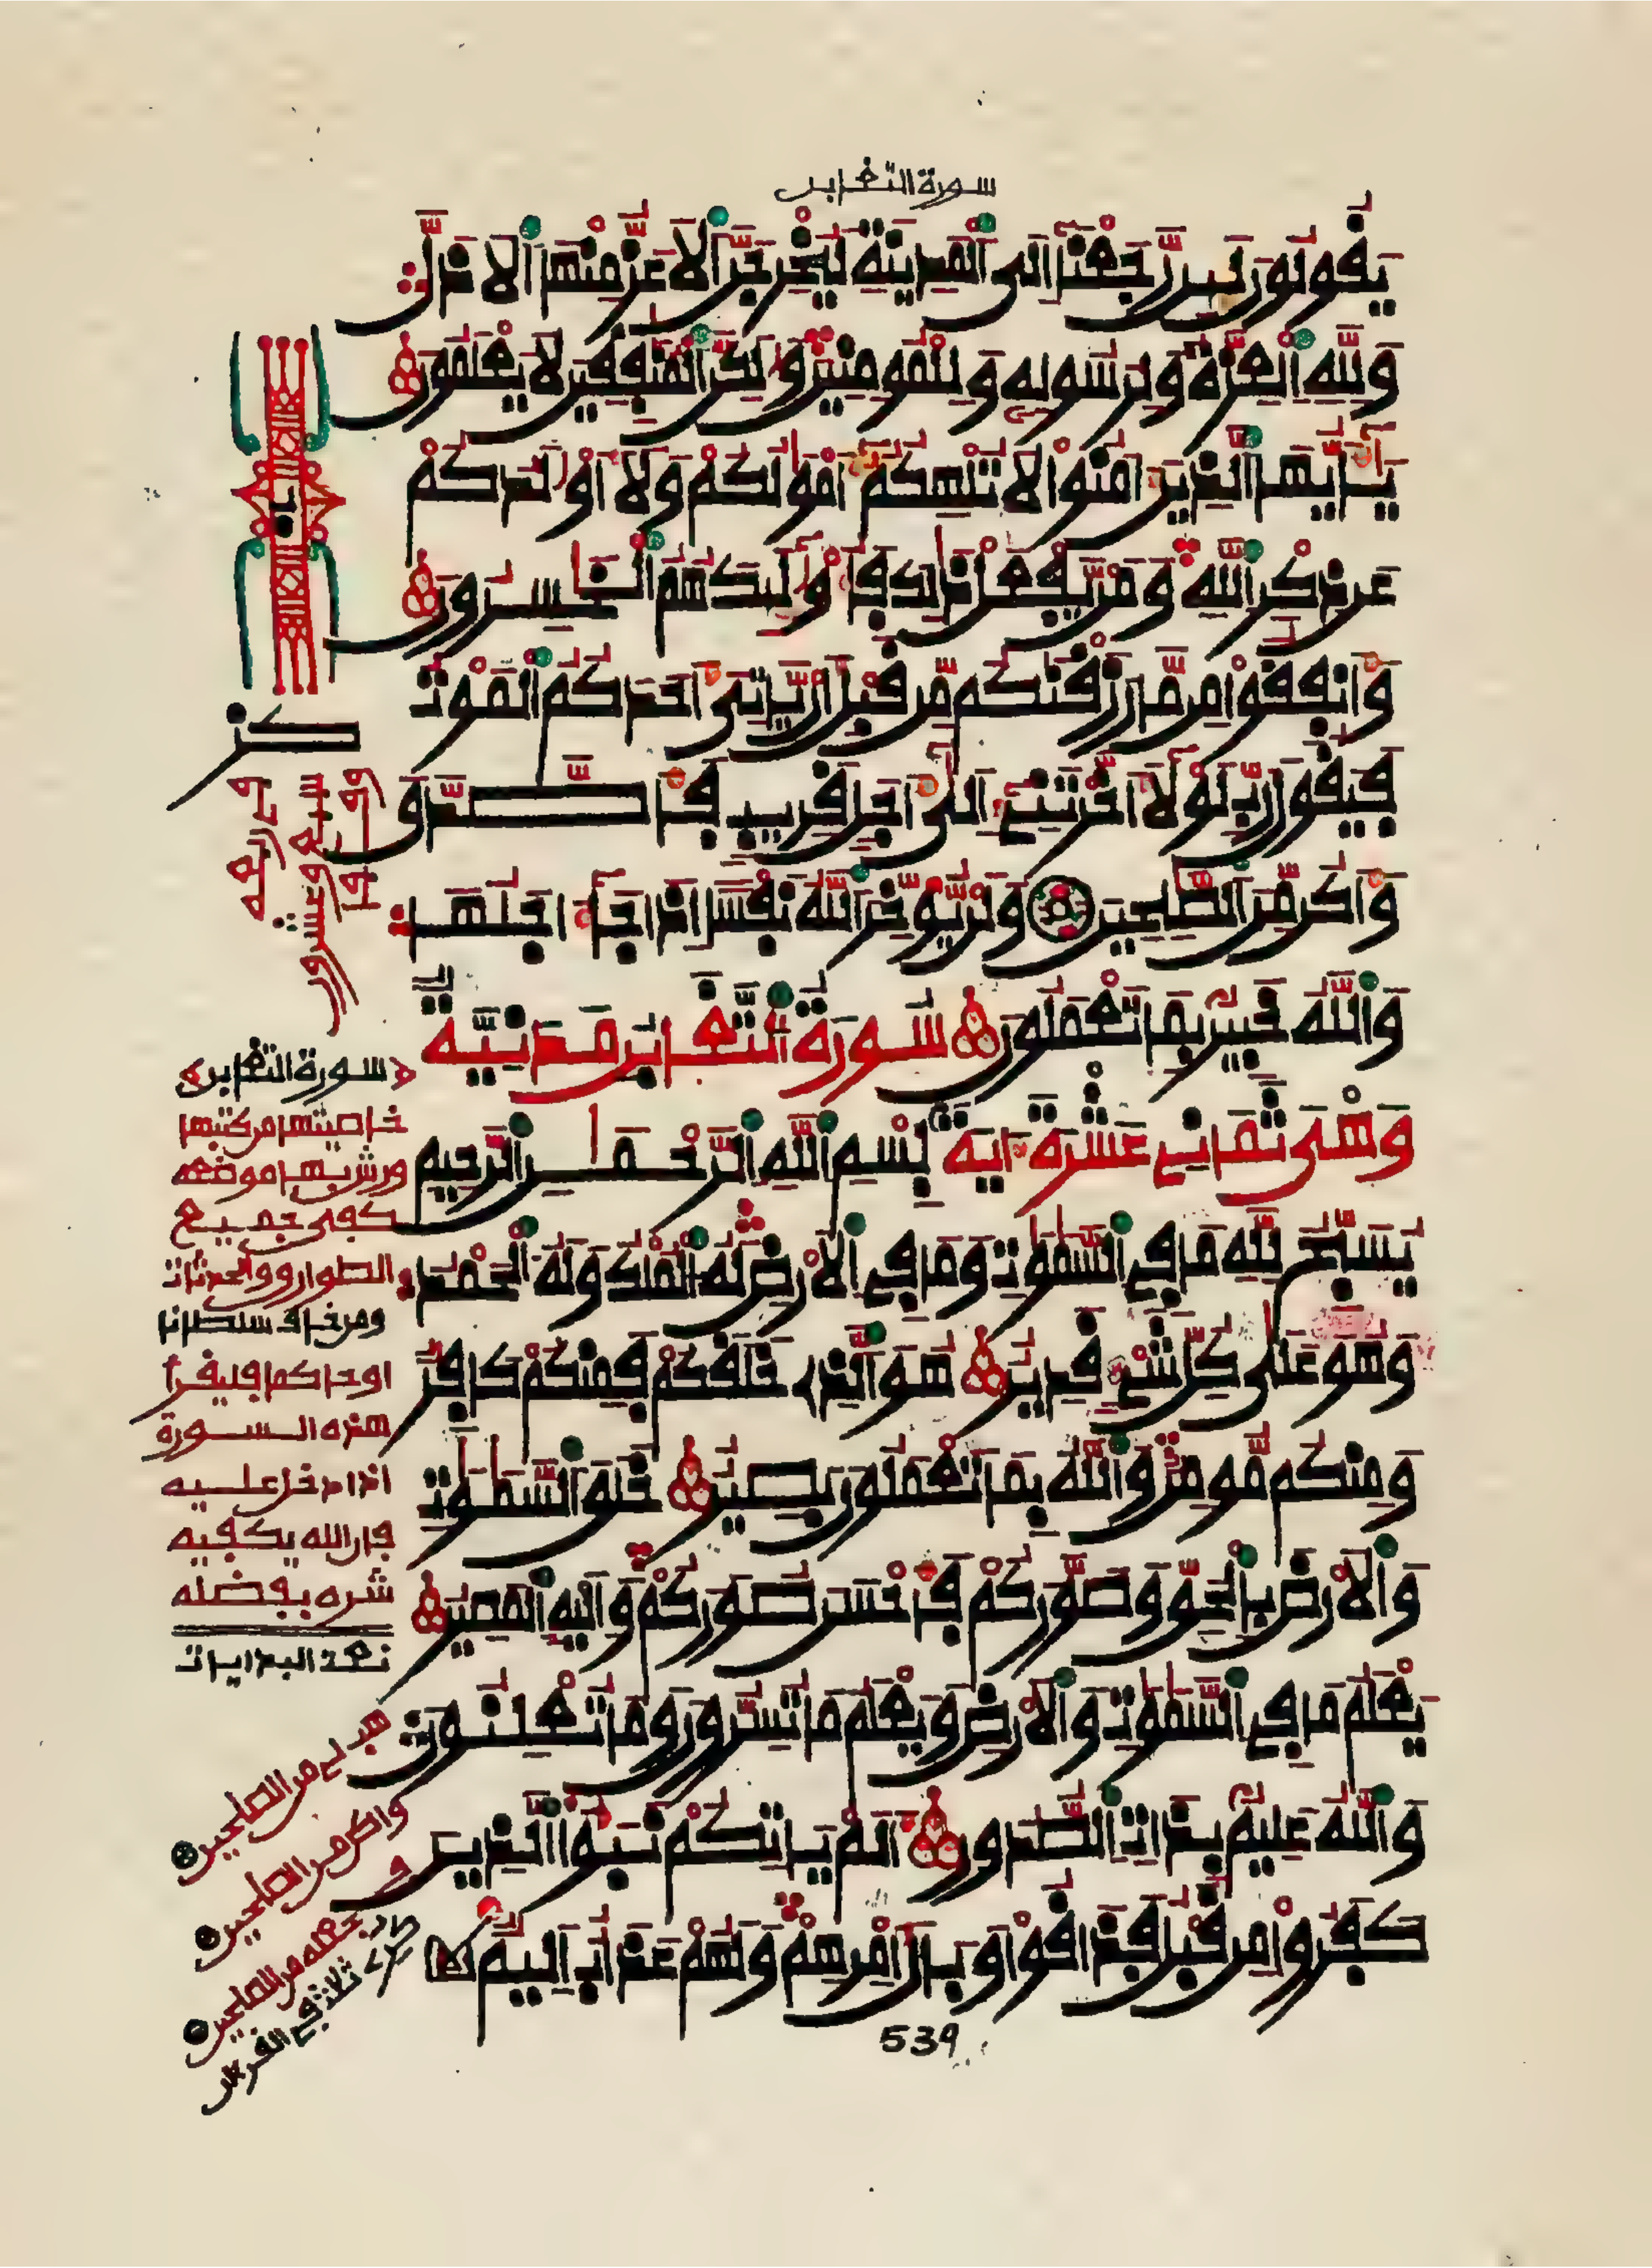 سورة التغابن
يقولون لين رجعنا إلى المدينة ليخرجن الاعز منها الاذل
ولله العزة ولرسوله وللمومنين ولكن المنفقين لا يعلمون
يايها الذين ءامنوا لا تلهكم أمولكم ولا أولدكم
عن ذكر الله ومن يفعل ذلك فأولئك هم الخسرون
وأنفقوا من ما رزقنكم من قبل أن ياتى أحدكم الموت
فيقول رب لولا أخرتنى إلى أجل قريب فأصدق
وأكن من الصلحين ولن يوخر الله نفسا اذا جا أجلها
والله خبير بما تعملون سورة التغابن مدنية
وهى ثمانى عشرة ءاية بسم الله الرحمن الرحيم
يسبح لله ما فى السموت وما فى الارض له الملك وله الحمد
وهو على كل شىء قدير هو الذى خلقكم فمنكم كافر
ومنكم مومن والله بما تعملون بصير خلق السموت
والارض بالحق وصوركم فأحسن صوركم وإليه المصير
يعلم ما فى السموت والارض ويعلم ما تسرون وما تعلنون
والله عليم بذات الصدور ألم ياتكم نبؤا الذين
كفروا من قبل فذاقوا وبال أمرهم ولهم عذاب أليم
539
كز
وقفا
سبع وعشرون
فى ربعه
سورة التغابن
خاصيتها من كتبها
ورش بها موضعه
كفى جميع
الطوارق والحدثات
ومن خاف سلطانا
او حاكما فليقرأ
هذه السورة
اذا دخل عليه
فان الله يكفيه
شره بفضله
نعت البدايات
هب لى من الصلحين
واكن من الصلحين
فجعله من الصلحين
ثلاث فى القرءان